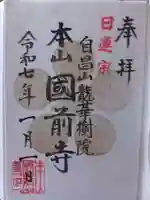 奉拝
日蓮宗
自昌山龍華樹院
本山國前寺
令和七年一月一